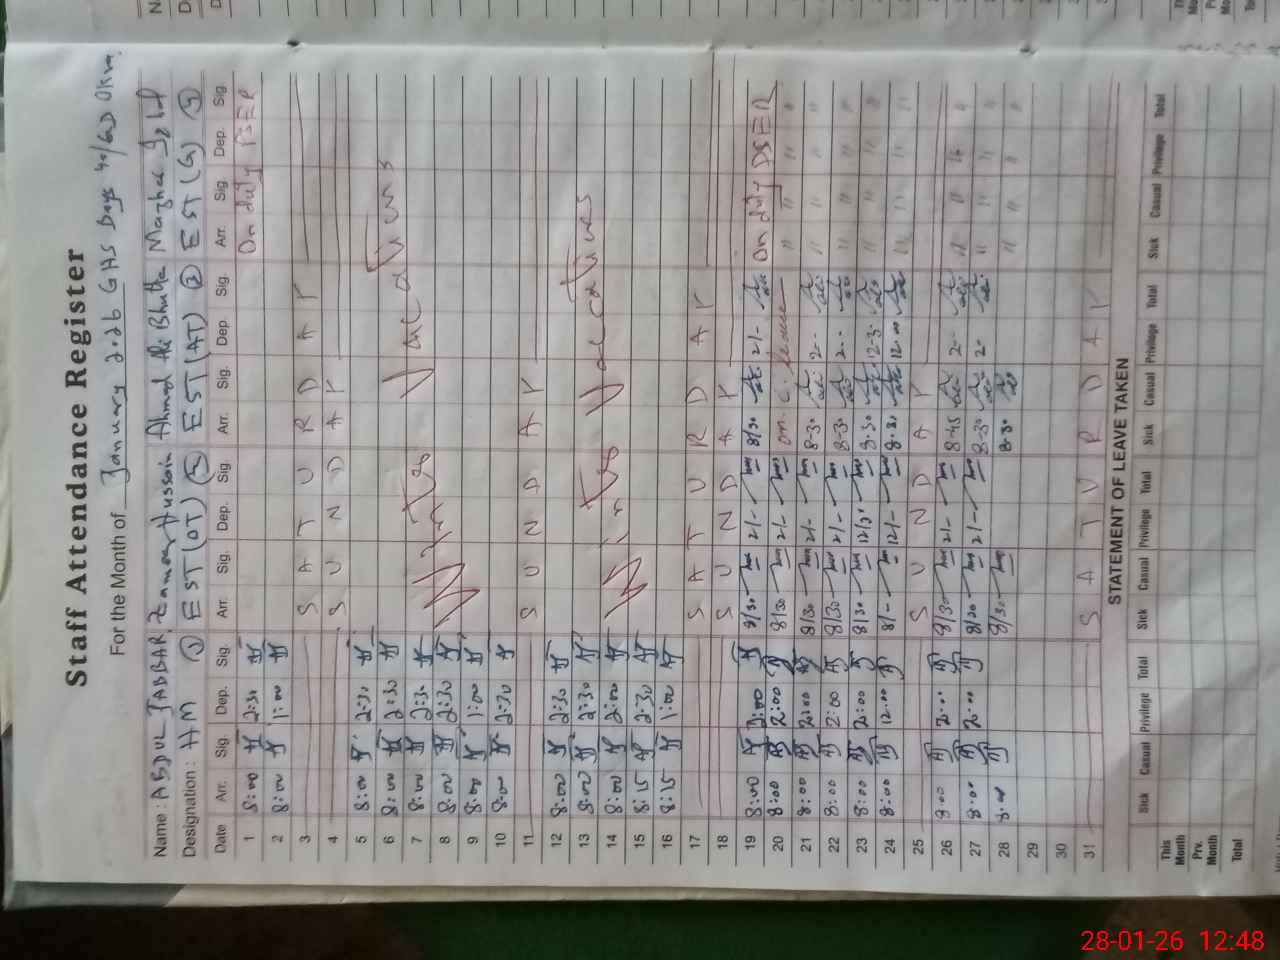 Staff Attendance Register
For the Month of January 2026 GHS
Name : ABDUL JABBAR Hussain Ahmad Ali Bhutta Mazhar
Designation : HM ① EST (OT) EST (AT) ② EST (G)
Date Arr. Sig. Dep. Sig. Arr. Sig. Dep. Sig. Arr. Sig. Dep. Sig. Arr. Sig. Dep. Sig.
1 8:00 2:30 On duty PSER
2 8:00 1:00
3 S A T U R D A Y
4 S U N D A Y
5 8:00 2:30
6 8:00 2:30
7 8:00 2:30 Winter Vacations
8 8:00 2:30
9 8:00 1:00
10 8:00 2:30
11 S U N D A Y
12 8:00 2:30
13 8:00 2:30
14 8:00 2:00 Winter Vacations
15 8:15 2:30
16 8:15 1:00
17 S A T U R D A Y
18 S U N D A Y
19 8:00 2:00 8/30 2/- 8/30 2/- On duty PSER
20 8:00 2:00 8/30 2/- on C. leave " " " "
21 8:00 2:00 8/30 2/- 8-30 2-- " " " "
22 8:00 2:00 8/30 2/- 8-30 2-- " " " "
23 8:00 2:00 8/30 12/30 8-30 12-30 " " " "
24 8:00 12:00 8/- 12/- 8-30 12-00 " " " "
25 S U N D A Y
26 8:00 2:00 8/30 2/- 8-45 2-- " " " "
27 8:00 2:00 8/30 2/- 8-30 2- " " " "
28 8:00 8/30 8-30 " " " "
29
30
31 S A T U R D A Y
STATEMENT OF LEAVE TAKEN
Sick Casual Privilege Total Sick Casual Privilege Total Sick Casual Privilege Total Sick Casual Privilege Total
This Month
Prv. Month
Total
28-01-26 12:48